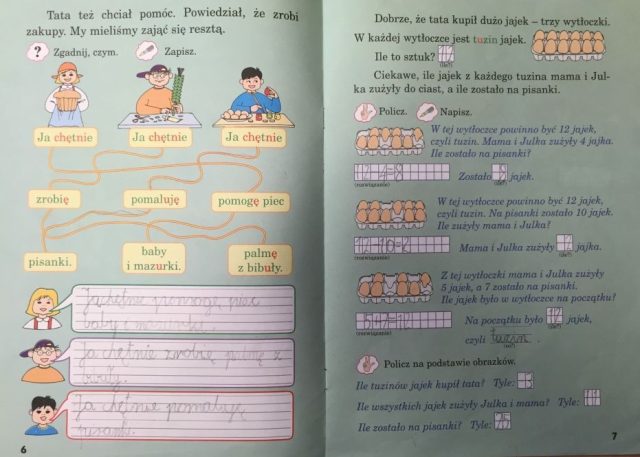 Tata też chciał pomóc. Powiedział, że zrobi
zakupy. My mieliśmy zająć się resztą.
? Zgadnij, czym. Zapisz.
Ja chętnie Ja chętnie Ja chętnie
zrobię pomaluję pomogę piec
pisanki. baby i mazurki. palmę z bibuły.
Ja chętnie pomogę piec
baby i mazurki.
Ja chętnie zrobię palmę z
Ja chętnie pomaluję
pisanki.
6
Dobrze, że tata kupił dużo jajek – trzy wytłoczki.
W każdej wytłoczce jest tuzin jajek.
Ile to sztuk?
(ile?)
Ciekawe, ile jajek z każdego tuzina mama i Jul-
ka zużyły do ciast, a ile zostało na pisanki.
Policz. Napisz.
W tej wytłoczce powinno być 12 jajek,
czyli tuzin. Mama i Julka zużyły 4 jajka.
Ile zostało na pisanki?
12-4=8 Zostało 8 jajek.
(rozwiązanie) (ile?)
W tej wytłoczce powinno być 12 jajek,
czyli tuzin. Na pisanki zostało 10 jajek.
Ile zużyły mama i Julka?
12-10=2 Mama i Julka zużyły 2 jajka.
(rozwiązanie) (ile?)
Z tej wytłoczki mama i Julka zużyły
5 jajek, a 7 zostało na pisanki.
Ile jajek było w wytłoczce na początku?
5+7=12 Na początku było 12 jajek,
(rozwiązanie) (ile?)
czyli tuzin.
(co?)
Policz na podstawie obrazków.
Ile tuzinów jajek kupił tata? Tyle: 3
Ile wszystkich jajek zużyły Julka i mama? Tyle: 11
Ile zostało na pisanki? Tyle: 25
7